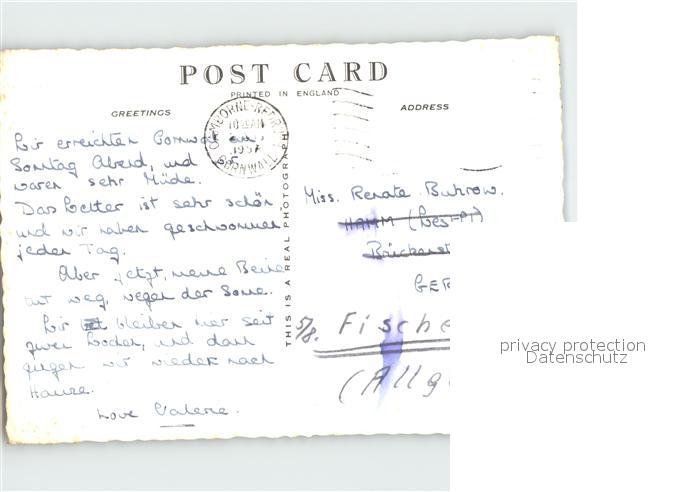 POST CARD
PRINTED IN ENGLAND
GREETINGS
ADDRESS
CAMBORNE-REDRUTH
10 AM
1957
CORNWALL
Wir erreichten Cornwall am
Sonntag Abend, und
waren sehr Müde.
Das Wetter ist sehr schön,
und wir haben geschwommen
jeden Tag.
Aber jetzt, meine Beine
tut weg, wegen der Sonne.
Wir bleiben hier seit
zwei Wochen, und dann
gingen wir wieder nach
Hause.
Love Valerie.
THIS IS A REAL PHOTOGRAPH
Miss. Renate Buhrow.
HAMM (West-
Brückenst
GER
5/8. Fische
(Allg
privacy protection
Datenschutz